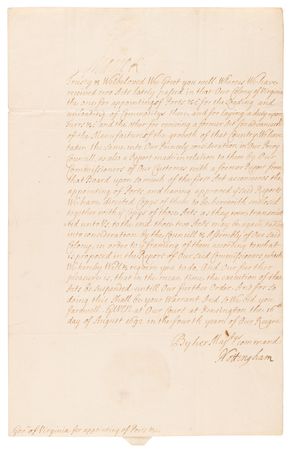 Trusty & Welbeloved We Greet you well. Whereas We have
received two Acts lately passed in that Our Colony of Virginia
the one for appointing of Ports &c for the Loading and
unloading of
taken the same into Our Princely consideration in Our Privy
Councill, as also a Report made in relation to them by Our
Commissioners of Our Customes with a former Report from
that Board upon Acts of the first that concernes the
appointing of Ports and having approved of said Report
We have directed Copys of them to be herewith inclosed
together with Copys of those Acts as they were transmitted
unto Us to the end those two Acts may be again taken
into consideration by the Councill & Assembly of Our said
Colony, in order to framing of them according to what
is proposed in the Report of Our said Commissioners which
We hereby Will & require you to do. And Our further
pleasure is, that in the mean time the execution of the
Acts be suspended untill Our further Order. And for so
doing this shall be your Warrant And so We bid you
farewell. Given at Our Court at Kensington the
day of August 1692 in the fourth year of Our Reigne
By her Majts Command
Nottingham
of Virginia for appointing of Ports &c.